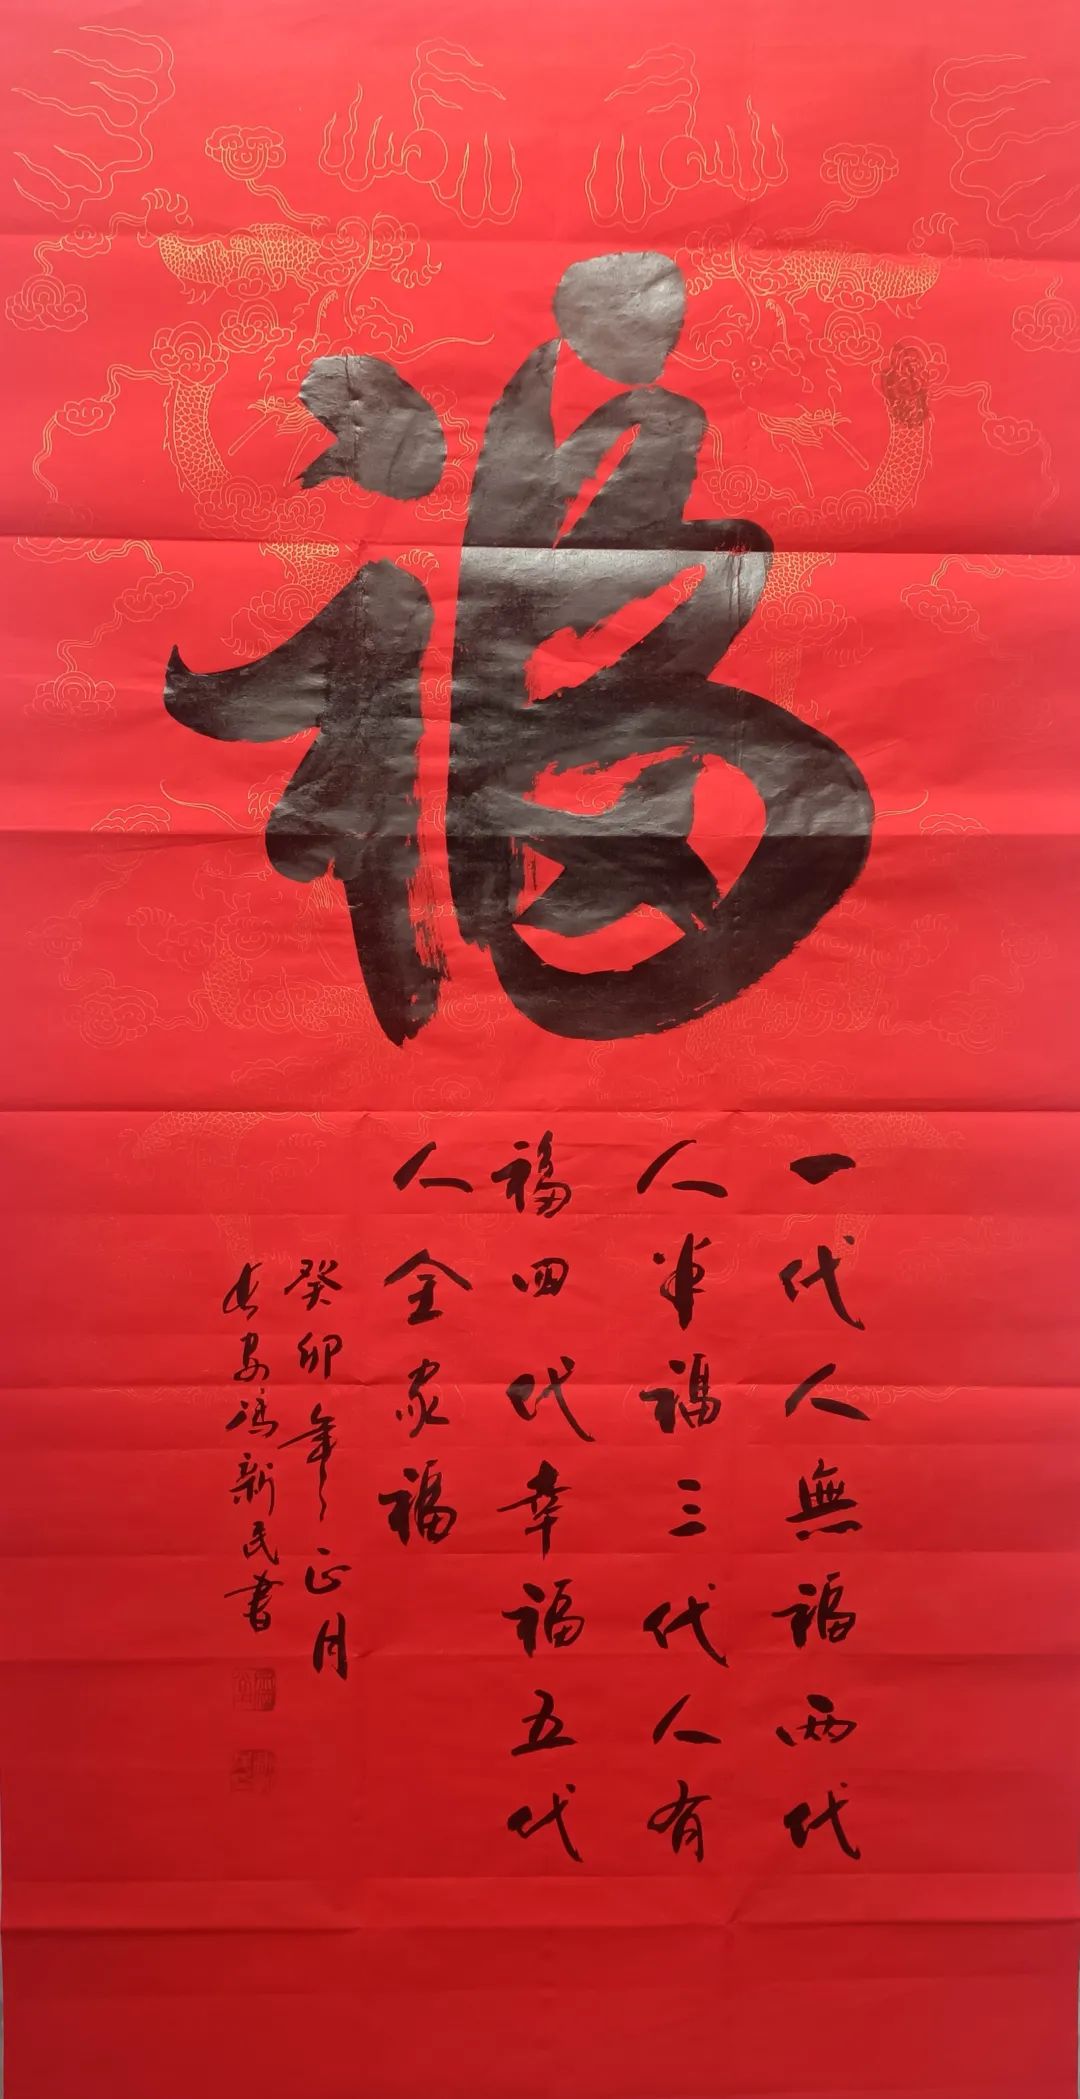 福
一代人無福两代
人半福三代人有
福四代幸福五代
人全家福
癸卯年正月
长安冯新民書